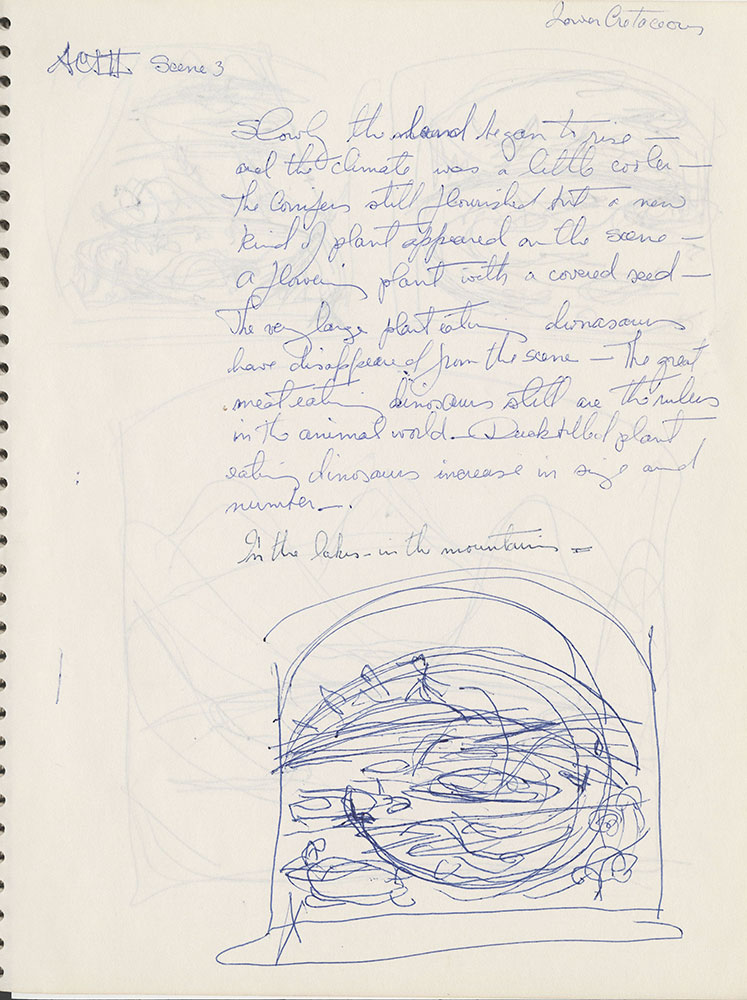 Lower Cretaceous
ACT III. Scene 3
Slowly the land began to rise —
and the climate was a little cooler —
The conifers still flourished but a new
kind of plant appeared on the scene —
a flowering plant with a covered seed —
The very large plant eating dionasaurs
have disappeared from the scene — The great
meat eating dinosaurs still are the rulers
in the animal world. Duckbilled plant
eating dinosaurs increase in size and
number —.
In the lakes - in the mountains =